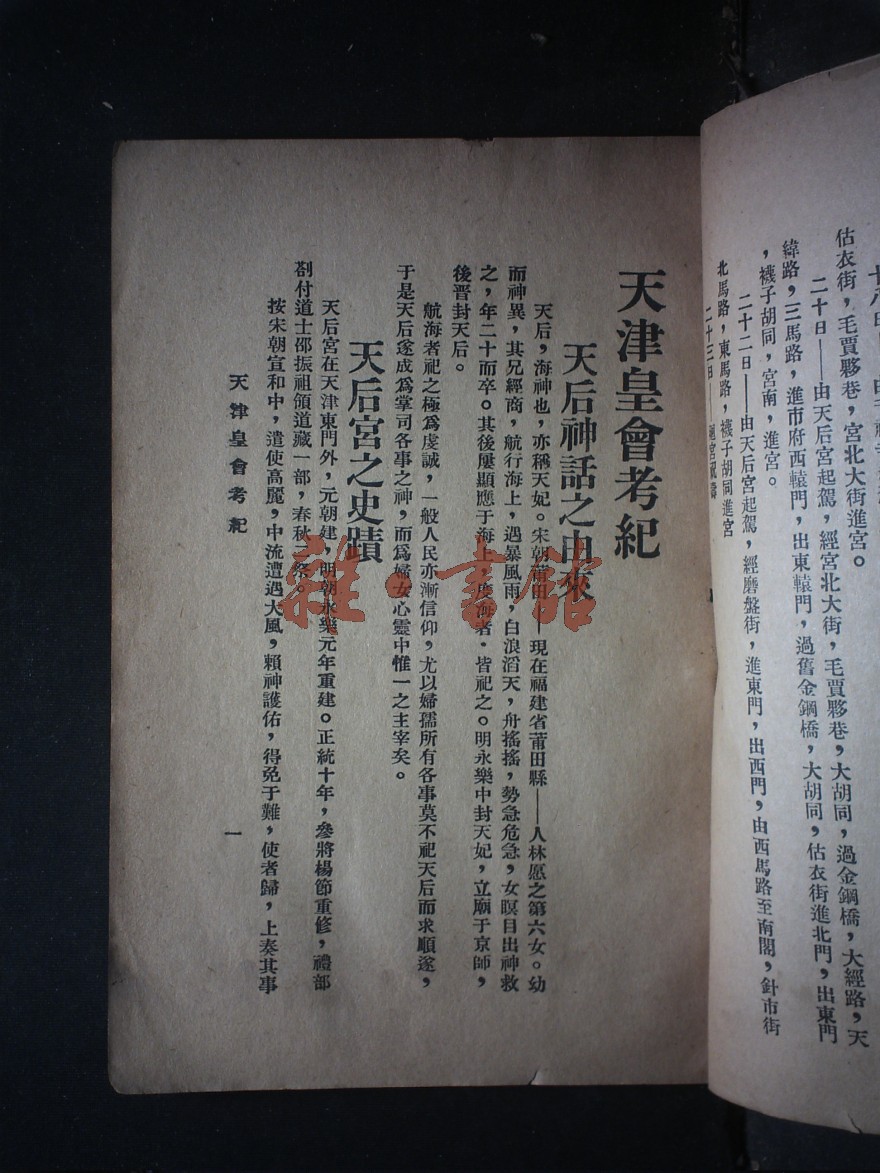 估衣街，毛賈夥巷，宮北大街進宮。
二十日——由天后宮起駕，經宮北大街，毛賈夥巷，大胡同，過金鋼橋，大經路，天
緯路，三馬路，進市府西轅門，出東轅門，過舊金鋼橋，大胡同，估衣街進北門，出東門
，襪子胡同，宮南，進宮。
二十二日——由天后宮起駕，經磨盤街，進東門，出西門，由西馬路至南閣，針市街
北馬路，東馬路，襪子胡同進宮
二十三日——
天津皇會考紀
天后神話之由來
天后，海神也，亦稱天妃。宋朝莆田——現在福建省莆田縣——人林愿之第六女。幼
而神異，其兄經商，航行海上，遇暴風雨，白浪滔天，舟搖搖，勢急危急，女瞑目出神救
之，年二十而卒。其後屢顯應于海上，度海者·皆祀之。明永樂中封天妃，立廟于京師，
後晋封天后。
航海者祀之極爲虔誠，一般人民亦漸信仰，尤以婦孺所有各事莫不祀天后而求順遂，
于是天后遂成爲掌司各事之神，而爲婦女心靈中惟一之主宰矣。
天后宮之史蹟
天后宮在天津東門外，元朝建，明朝永樂元年重建。正統十年，參將楊節重修，禮部
剳付道士邵振祖領道藏一部，春秋二祭。
按宋朝宣和中，遣使高麗，中流遭遇大風，賴神護佑，得免于難，使者歸，上奏其事
天津皇會考紀
一
雜·書館